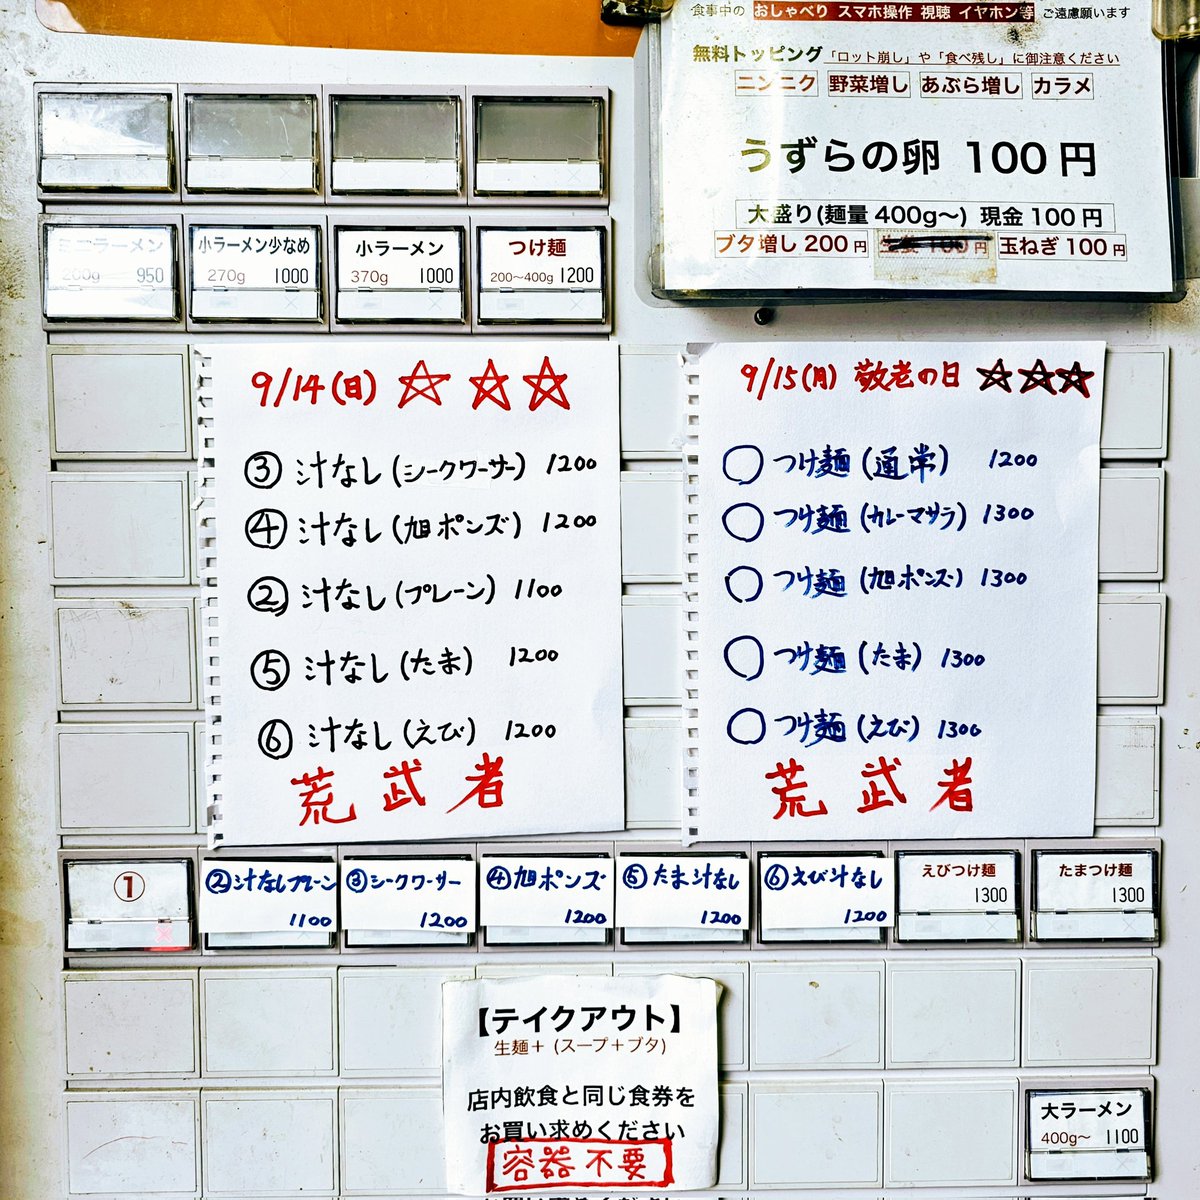 食事中の おしゃべり スマホ操作 視聴 イヤホン等 ご遠慮願います
無料トッピング「ロット崩し」や「食べ残し」に御注意ください
ニンニク 野菜増し あぶら増し カラメ
うずらの卵 100円
大盛り(麺量400g〜) 現金100円
ブタ増し200円 100円 玉ねぎ100円
ミニラーメン
200g 950
小ラーメン少なめ
270g 1000
小ラーメン
370g 1000
つけ麺
200〜400g 1200
9/14(日) ☆☆☆
③ 汁なし(シークワーサー) 1200
④ 汁なし(旭ポンズ) 1200
② 汁なし(プレーン) 1100
⑤ 汁なし(たま) 1200
⑥ 汁なし(えび) 1200
荒武者
9/15(月) 敬老の日 ☆☆☆
○ つけ麺(通常) 1200
○ つけ麺(カレーマサラ) 1300
○ つけ麺(旭ポンズ) 1300
○ つけ麺(たま) 1300
○ つけ麺(えび) 1300
荒武者
①
②汁なしプレーン
1100
③シークワーサー
1200
④旭ポンズ
1200
⑤たま汁なし
1200
⑥えび汁なし
1200
えびつけ麺
1300
たまつけ麺
1300
【テイクアウト】
生麺＋(スープ＋ブタ)
店内飲食と同じ食券を
お買い求めください
容器不要
大ラーメン
400g〜 1100